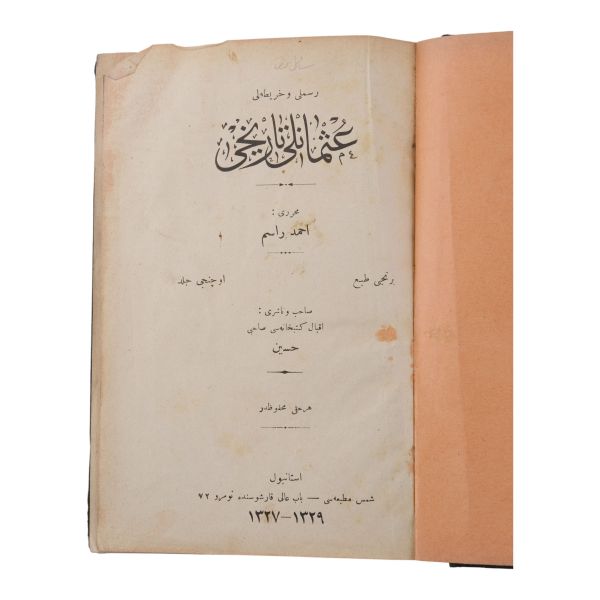 رسملی و خریطه‌لی
عثمانلی تاریخی
محرری :
احمد راسم
برنجی طبع
اوچنجی جلد
صاحب و ناشری :
اقبال کتبخانه‌سی صاحبی
حسین
هر حقی محفوظدر
استانبول
شمس مطبعه‌سی — باب عالی قارشوسنده نومرو ٧٢
١٣٢٧—١٣٢٩